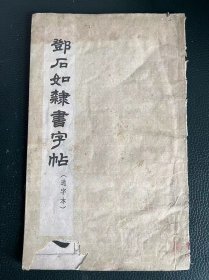 鄧石如隸書字帖
（选字本）